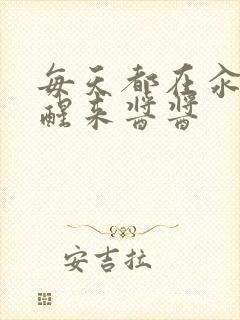 每天都在汆
醒来酱酱
安吉拉